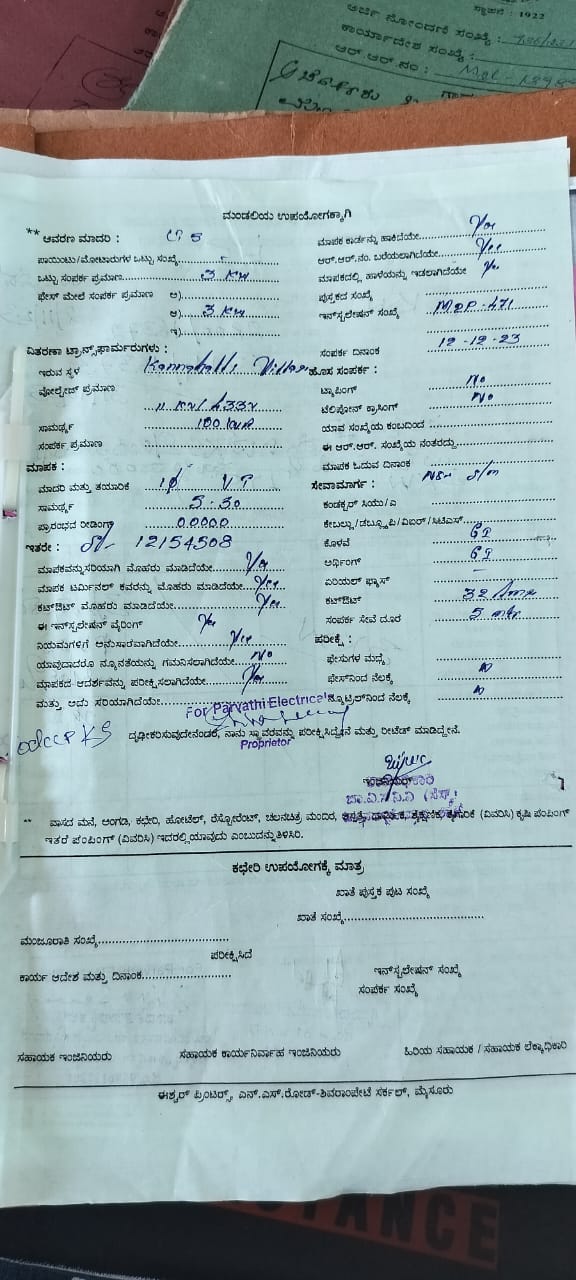 ಸ್ಥಾಪನೆ : 1922
ಅರ್ಜಿ ನೋಂದಣಿ ಸಂಖ್ಯೆ :
ಕಾರ್ಯಾದೇಶ ಸಂಖ್ಯೆ :
ಆರ್.ಆರ್.ನಂ :
ಮಂಡಲಿಯ ಉಪಯೋಗಕ್ಕಾಗಿ
** ಆವರಣ ಮಾದರಿ :
ಪಾಯಿಂಟು/ಮೋಟಾರುಗಳ ಒಟ್ಟು ಸಂಖ್ಯೆ
ಒಟ್ಟು ಸಂಪರ್ಕ ಪ್ರಮಾಣ 3 KW
ಫೇಸ್ ಮೇಲೆ ಸಂಪರ್ಕ ಪ್ರಮಾಣ ಅ)
ಆ) 3 KW
ಇ)
ವಿತರಣಾ ಟ್ರಾನ್ಸ್‌ಫಾರ್ಮರುಗಳು :
ಇರುವ ಸ್ಥಳ
ವೋಲ್ಟೇಜ್ ಪ್ರಮಾಣ
11 KV/433V
ಸಾಮರ್ಥ್ಯ 100 KVA
ಸಂಪರ್ಕ ಪ್ರಮಾಣ
ಮಾಪಕ :
ಮಾದರಿ ಮತ್ತು ತಯಾರಿಕೆ 1ϕ VT
ಸಾಮರ್ಥ್ಯ 5-30
ಪ್ರಾರಂಭದ ರೀಡಿಂಗ್ 00000
ಇತರೇ : 12154508
ಮಾಪಕವನ್ನು ಸರಿಯಾಗಿ ಮೊಹರು ಮಾಡಿದೆಯೇ Yes
ಮಾಪಕ ಟರ್ಮಿನಲ್ ಕವರನ್ನು ಮೊಹರು ಮಾಡಿದೆಯೇ Yes
ಕಟ್ಔಟ್ ಮೊಹರು ಮಾಡಿದೆಯೇ Yes
ಈ ಇನ್‌ಸ್ಟಲೇಷನ್ ವೈರಿಂಗ್ Yes
ನಿಯಮಗಳಿಗೆ ಅನುಸಾರವಾಗಿದೆಯೇ Yes
ಯಾವುದಾದರೂ ನ್ಯೂನತೆಯನ್ನು ಗಮನಿಸಲಾಗಿದೆಯೇ No
ಮಾಪಕದ ಆದರ್ಶವನ್ನು ಪರೀಕ್ಷಿಸಲಾಗಿದೆಯೇ Yes
ಮತ್ತು ಅದು ಸರಿಯಾಗಿದೆಯೇ
ಮಾಪಕ ಕಾರ್ಡನ್ನು ಹಾಕಿದೆಯೇ Yes
ಆರ್.ಆರ್.ನಂ. ಬರೆಯಲಾಗಿದೆಯೇ Yes
ಮಾಪಕದಲ್ಲಿ ಹಾಳೆಯನ್ನು ಇಡಲಾಗಿದೆಯೇ Yes
ಪುಸ್ತಕದ ಸಂಖ್ಯೆ
ಇನ್‌ಸ್ಟಲೇಷನ್ ಸಂಖ್ಯೆ
ಸಂಪರ್ಕ ದಿನಾಂಕ 12-12-23
ಹೊಸ ಸಂಪರ್ಕ :
ಟ್ಯಾಪಿಂಗ್ No
ಟೆಲಿಫೋನ್ ಕ್ರಾಸಿಂಗ್ No
ಯಾವ ಸಂಖ್ಯೆಯ ಕಂಬದಿಂದ
ಈ ಆರ್.ಆರ್. ಸಂಖ್ಯೆಯ ನಂತರದ್ದು
ಮಾಪಕ ಓದುವ ದಿನಾಂಕ
ಸೇವಾಮಾರ್ಗ :
ಕಂಡಕ್ಟರ್ ಸಿಯು/ಎ
ಕೇಬಲ್ಲು/ಡಬ್ಲ್ಯೂಪಿ/ವಿಐಆರ್/ಸಿಟಿಎಸ್
ಕೊಳವೆ GI
ಅರ್ಥಿಂಗ್ GI
ಏರಿಯಲ್ ಫ್ಯೂಸ್ –
ಕಟ್ಔಟ್ 32 Amp
ಸಂಪರ್ಕ ಸೇವೆ ದೂರ 5 mtr
ಪರೀಕ್ಷೆ :
ಫೇಸುಗಳ ಮಧ್ಯೆ
ಫೇಸ್‌ನಿಂದ ನೆಲಕ್ಕೆ
ನ್ಯೂಟ್ರಲ್‌ನಿಂದ ನೆಲಕ್ಕೆ
For Parvathi Electricals
Proprietor
ದೃಢೀಕರಿಸುವುದೇನೆಂದರೆ, ನಾನು ಸ್ಥಾವರವನ್ನು ಪರೀಕ್ಷಿಸಿದ್ದೇನೆ ಮತ್ತು ರೀಟೆಡ್ ಮಾಡಿದ್ದೇನೆ.
** ವಾಸದ ಮನೆ, ಅಂಗಡಿ, ಕಛೇರಿ, ಹೋಟೆಲ್, ರೆಸ್ಟೋರೆಂಟ್, ಚಲನಚಿತ್ರ ಮಂದಿರ, ಆಸ್ಪತ್ರೆ, ಧಾರ್ಮಿಕ, ಶೈಕ್ಷಣಿಕ, ಕೈಗಾರಿಕೆ (ವಿವರಿಸಿ) ಕೃಷಿ ಪಂಪಿಂಗ್
ಇತರೆ ಪಂಪಿಂಗ್ (ವಿವರಿಸಿ) ಇದರಲ್ಲಿ ಯಾವುದು ಎಂಬುದನ್ನು ತಿಳಿಸಿರಿ.
ಕಛೇರಿ ಉಪಯೋಗಕ್ಕೆ ಮಾತ್ರ
ಖಾತೆ ಪುಸ್ತಕ ಪುಟ ಸಂಖ್ಯೆ
ಖಾತೆ ಸಂಖ್ಯೆ
ಮಂಜೂರಾತಿ ಸಂಖ್ಯೆ
ಪರೀಕ್ಷಿಸಿದೆ
ಕಾರ್ಯ ಆದೇಶ ಮತ್ತು ದಿನಾಂಕ
ಇನ್‌ಸ್ಟಲೇಷನ್ ಸಂಖ್ಯೆ
ಸಂಪರ್ಕ ಸಂಖ್ಯೆ
ಸಹಾಯಕ ಇಂಜಿನಿಯರು ಸಹಾಯಕ ಕಾರ್ಯನಿರ್ವಾಹ ಇಂಜಿನಿಯರು ಹಿರಿಯ ಸಹಾಯಕ / ಸಹಾಯಕ ಲೆಕ್ಕಾಧಿಕಾರಿ
ಈಶ್ವರ್ ಪ್ರಿಂಟರ್ಸ್, ಎನ್.ಎಸ್.ರೋಡ್-ಶಿವರಾಂಪೇಟೆ ಸರ್ಕಲ್, ಮೈಸೂರು